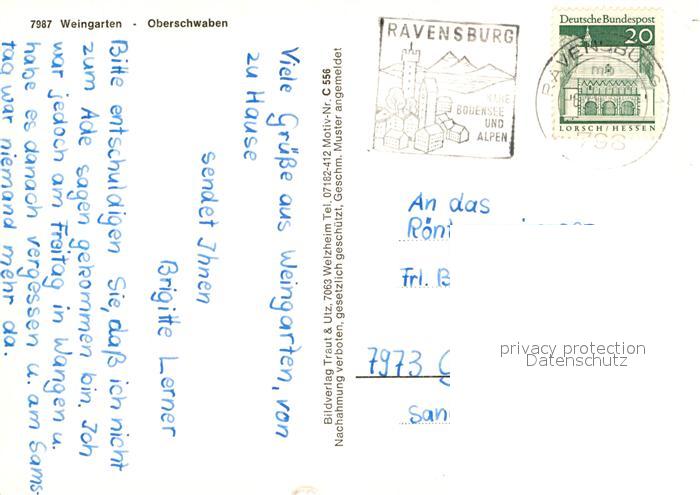 7987 Weingarten - Oberschwaben
Viele Grüße aus Weingarten, von
zu Hause
sendet Ihnen
Brigitte Lerner
Bitte entschuldigen Sie, daß ich nicht
zum Ade sagen gekommen bin. Ich
war jedoch am Freitag in Wangen u.
habe es danach vergessen u. am Sams-
tag war niemand mehr da.
Bildverlag Traut & Utz, 7063 Welzheim Tel. 07182-412 Motiv-Nr. C 556
Nachahmung verboten, gesetzlich geschützt, Geschm. Muster angemeldet
RAVENSBURG
BODENSEE
UND
ALPEN
Deutsche Bundespost
20
LORSCH/HESSEN
RAVENSBURG
mb
798
An das
Frl. B
7973
privacy protection
Datenschutz